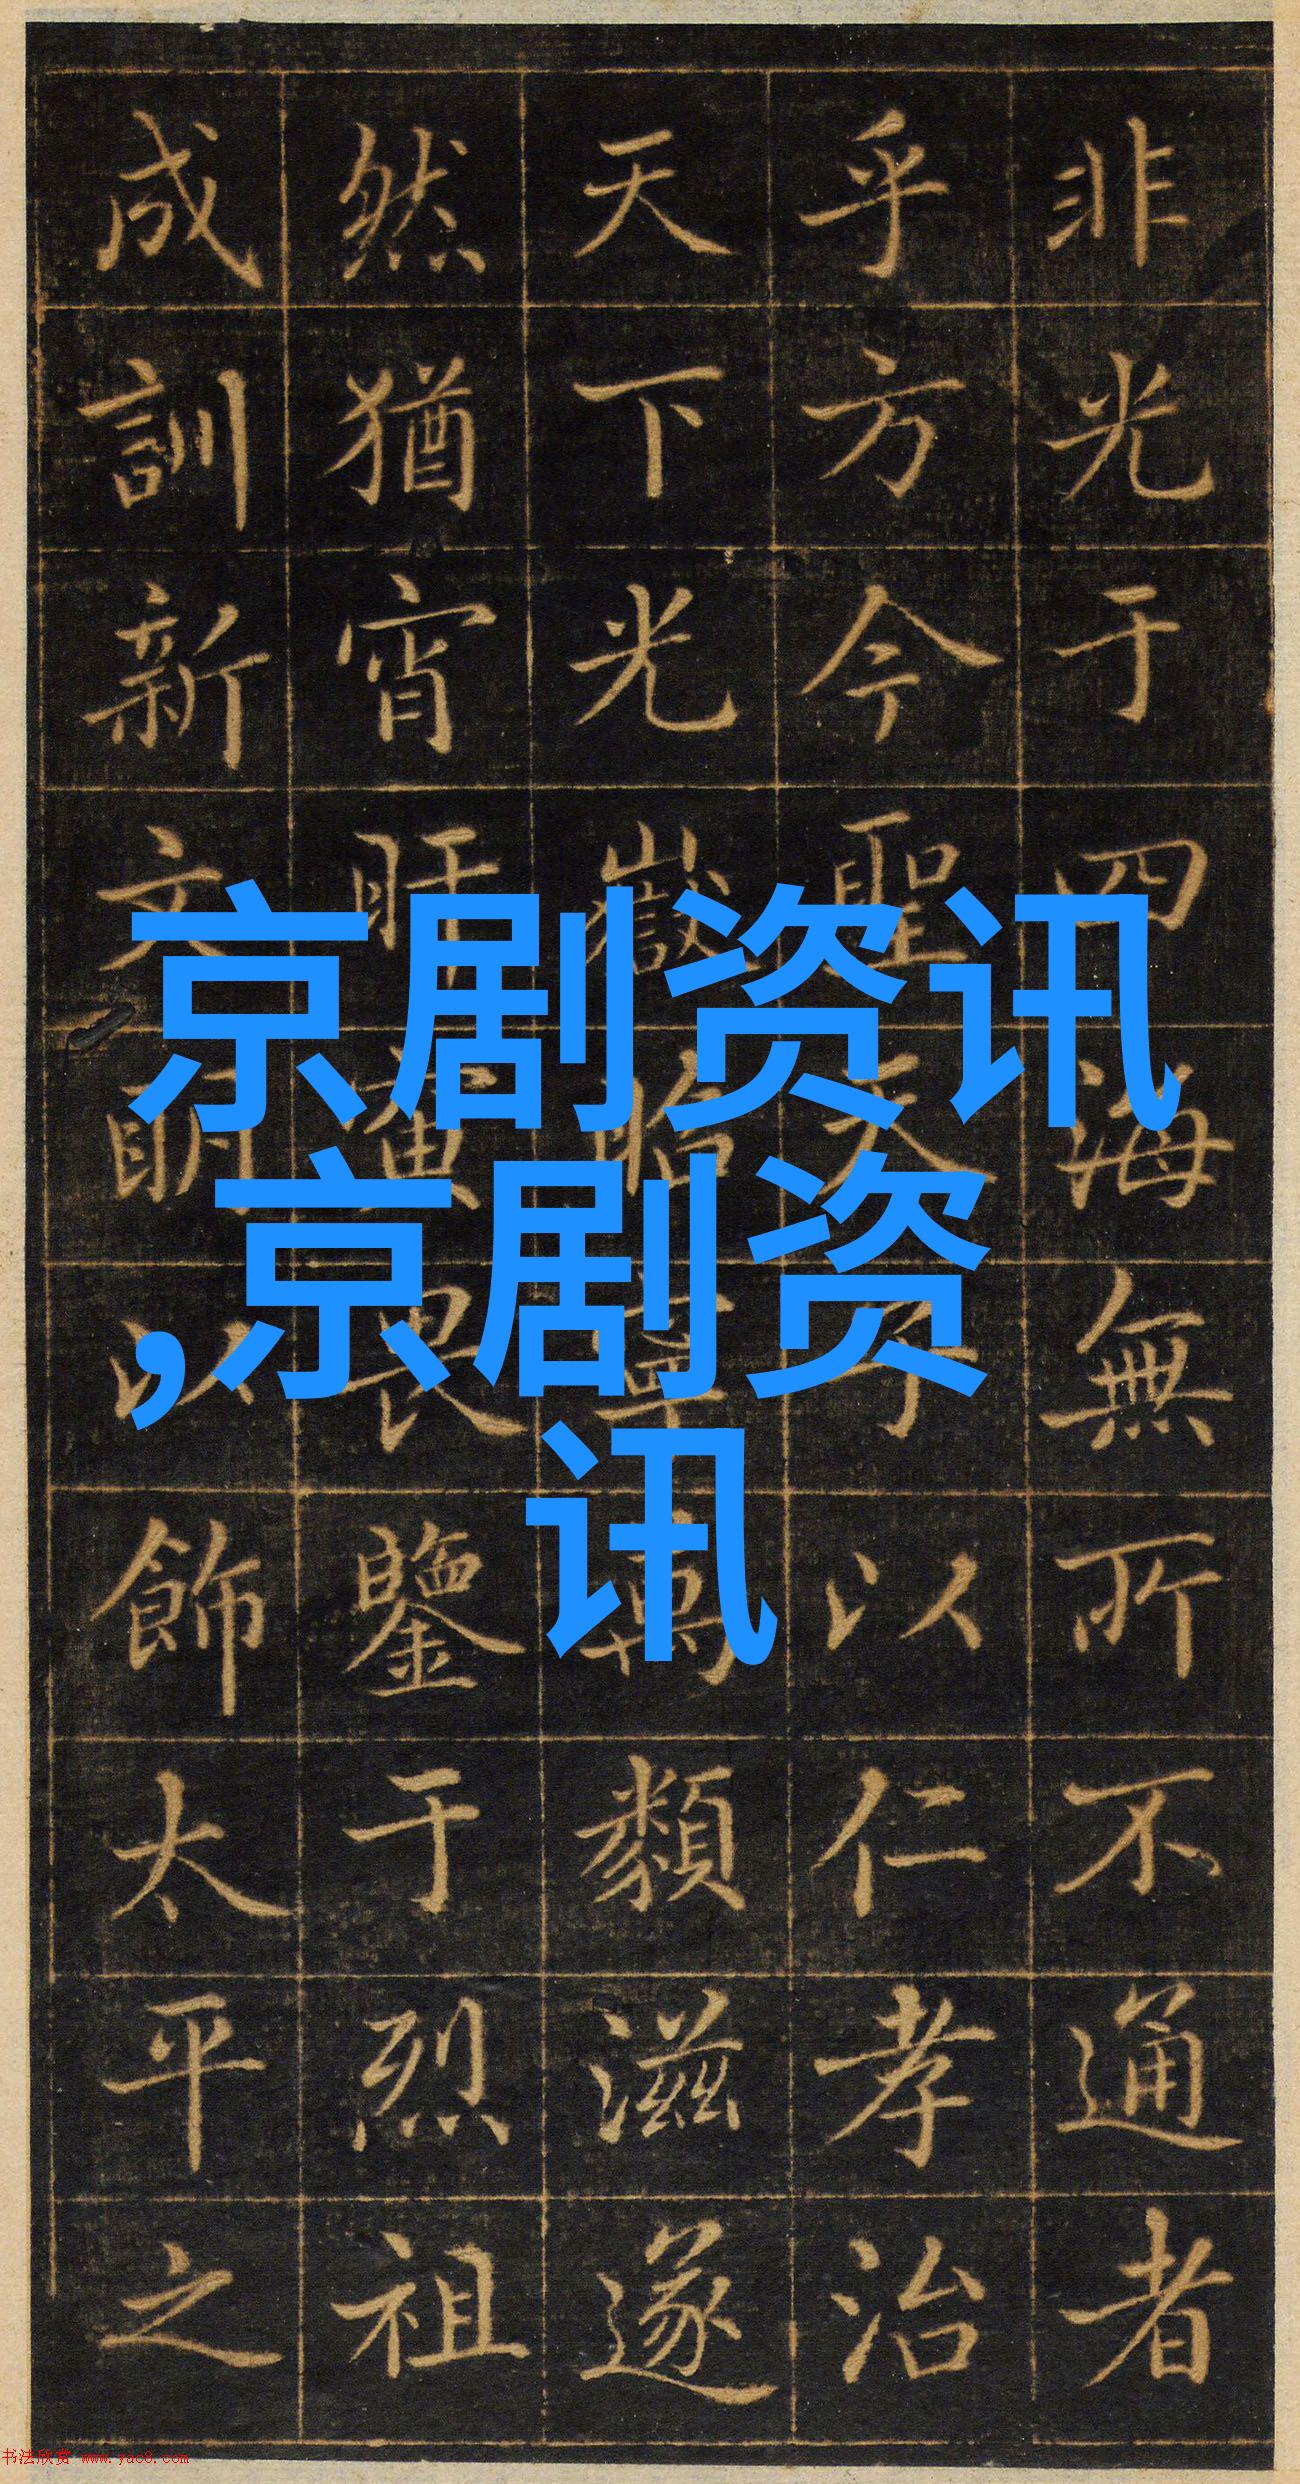 非光于四海無所不通者
乎方今聖天子以仁孝治
天下光嶽萬類滋遂
然猶宵旰寅畏鑒于烈祖
成訓新文明以飾太平之
京剧资讯
,京剧资
讯
书法欣赏 www.yac8.com